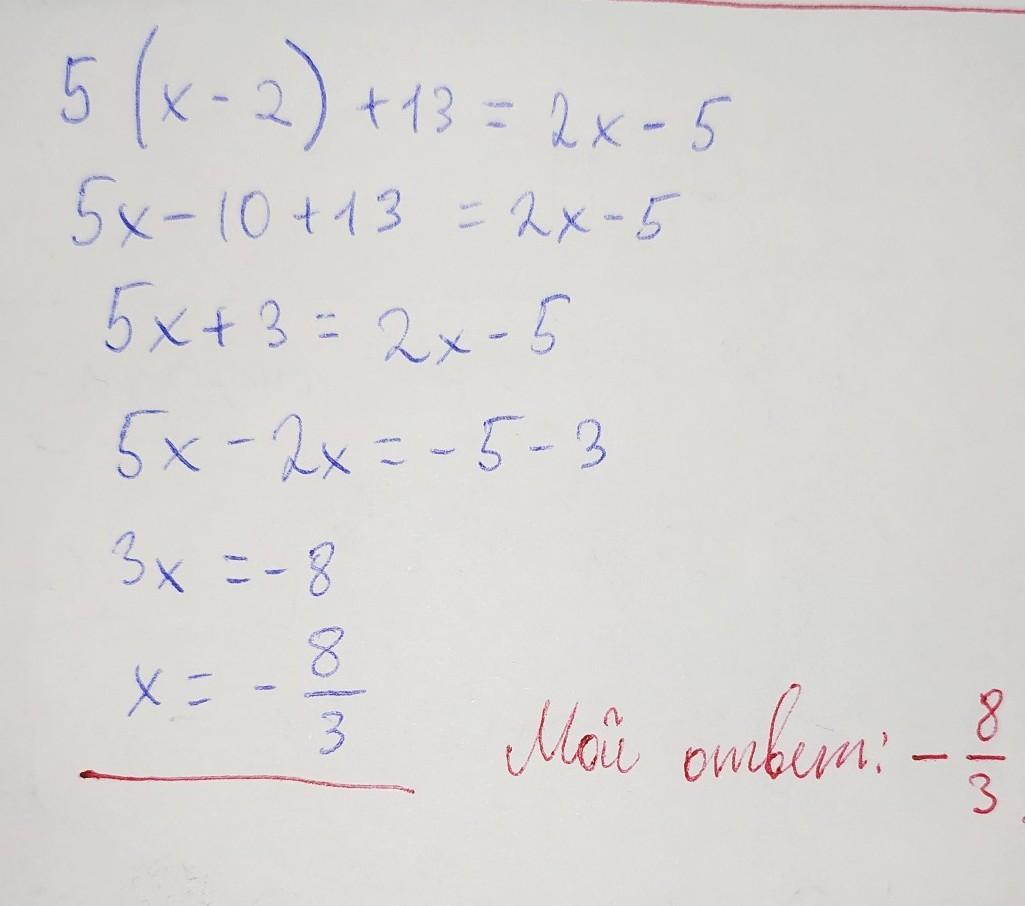 5 (x - 2) + 13 = 2x - 5
5x - 10 + 13 = 2x - 5
5x + 3 = 2x - 5
5x - 2x = - 5 - 3
3x = - 8
x = - 8/3
Мой ответ: - 8/3.